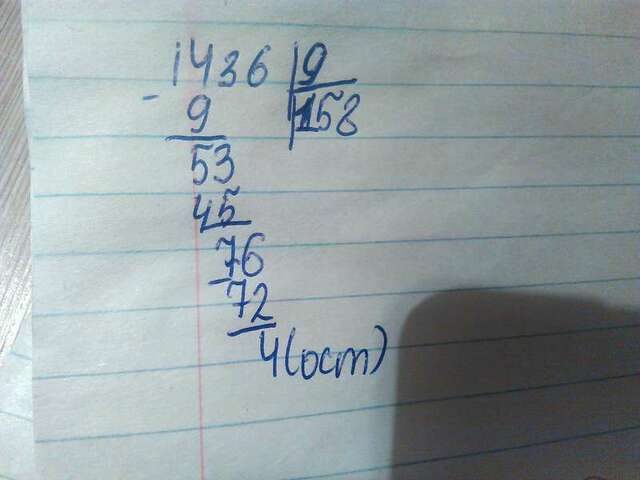 1436 9
- 9 158
53
45
- 76
72
4(ост)